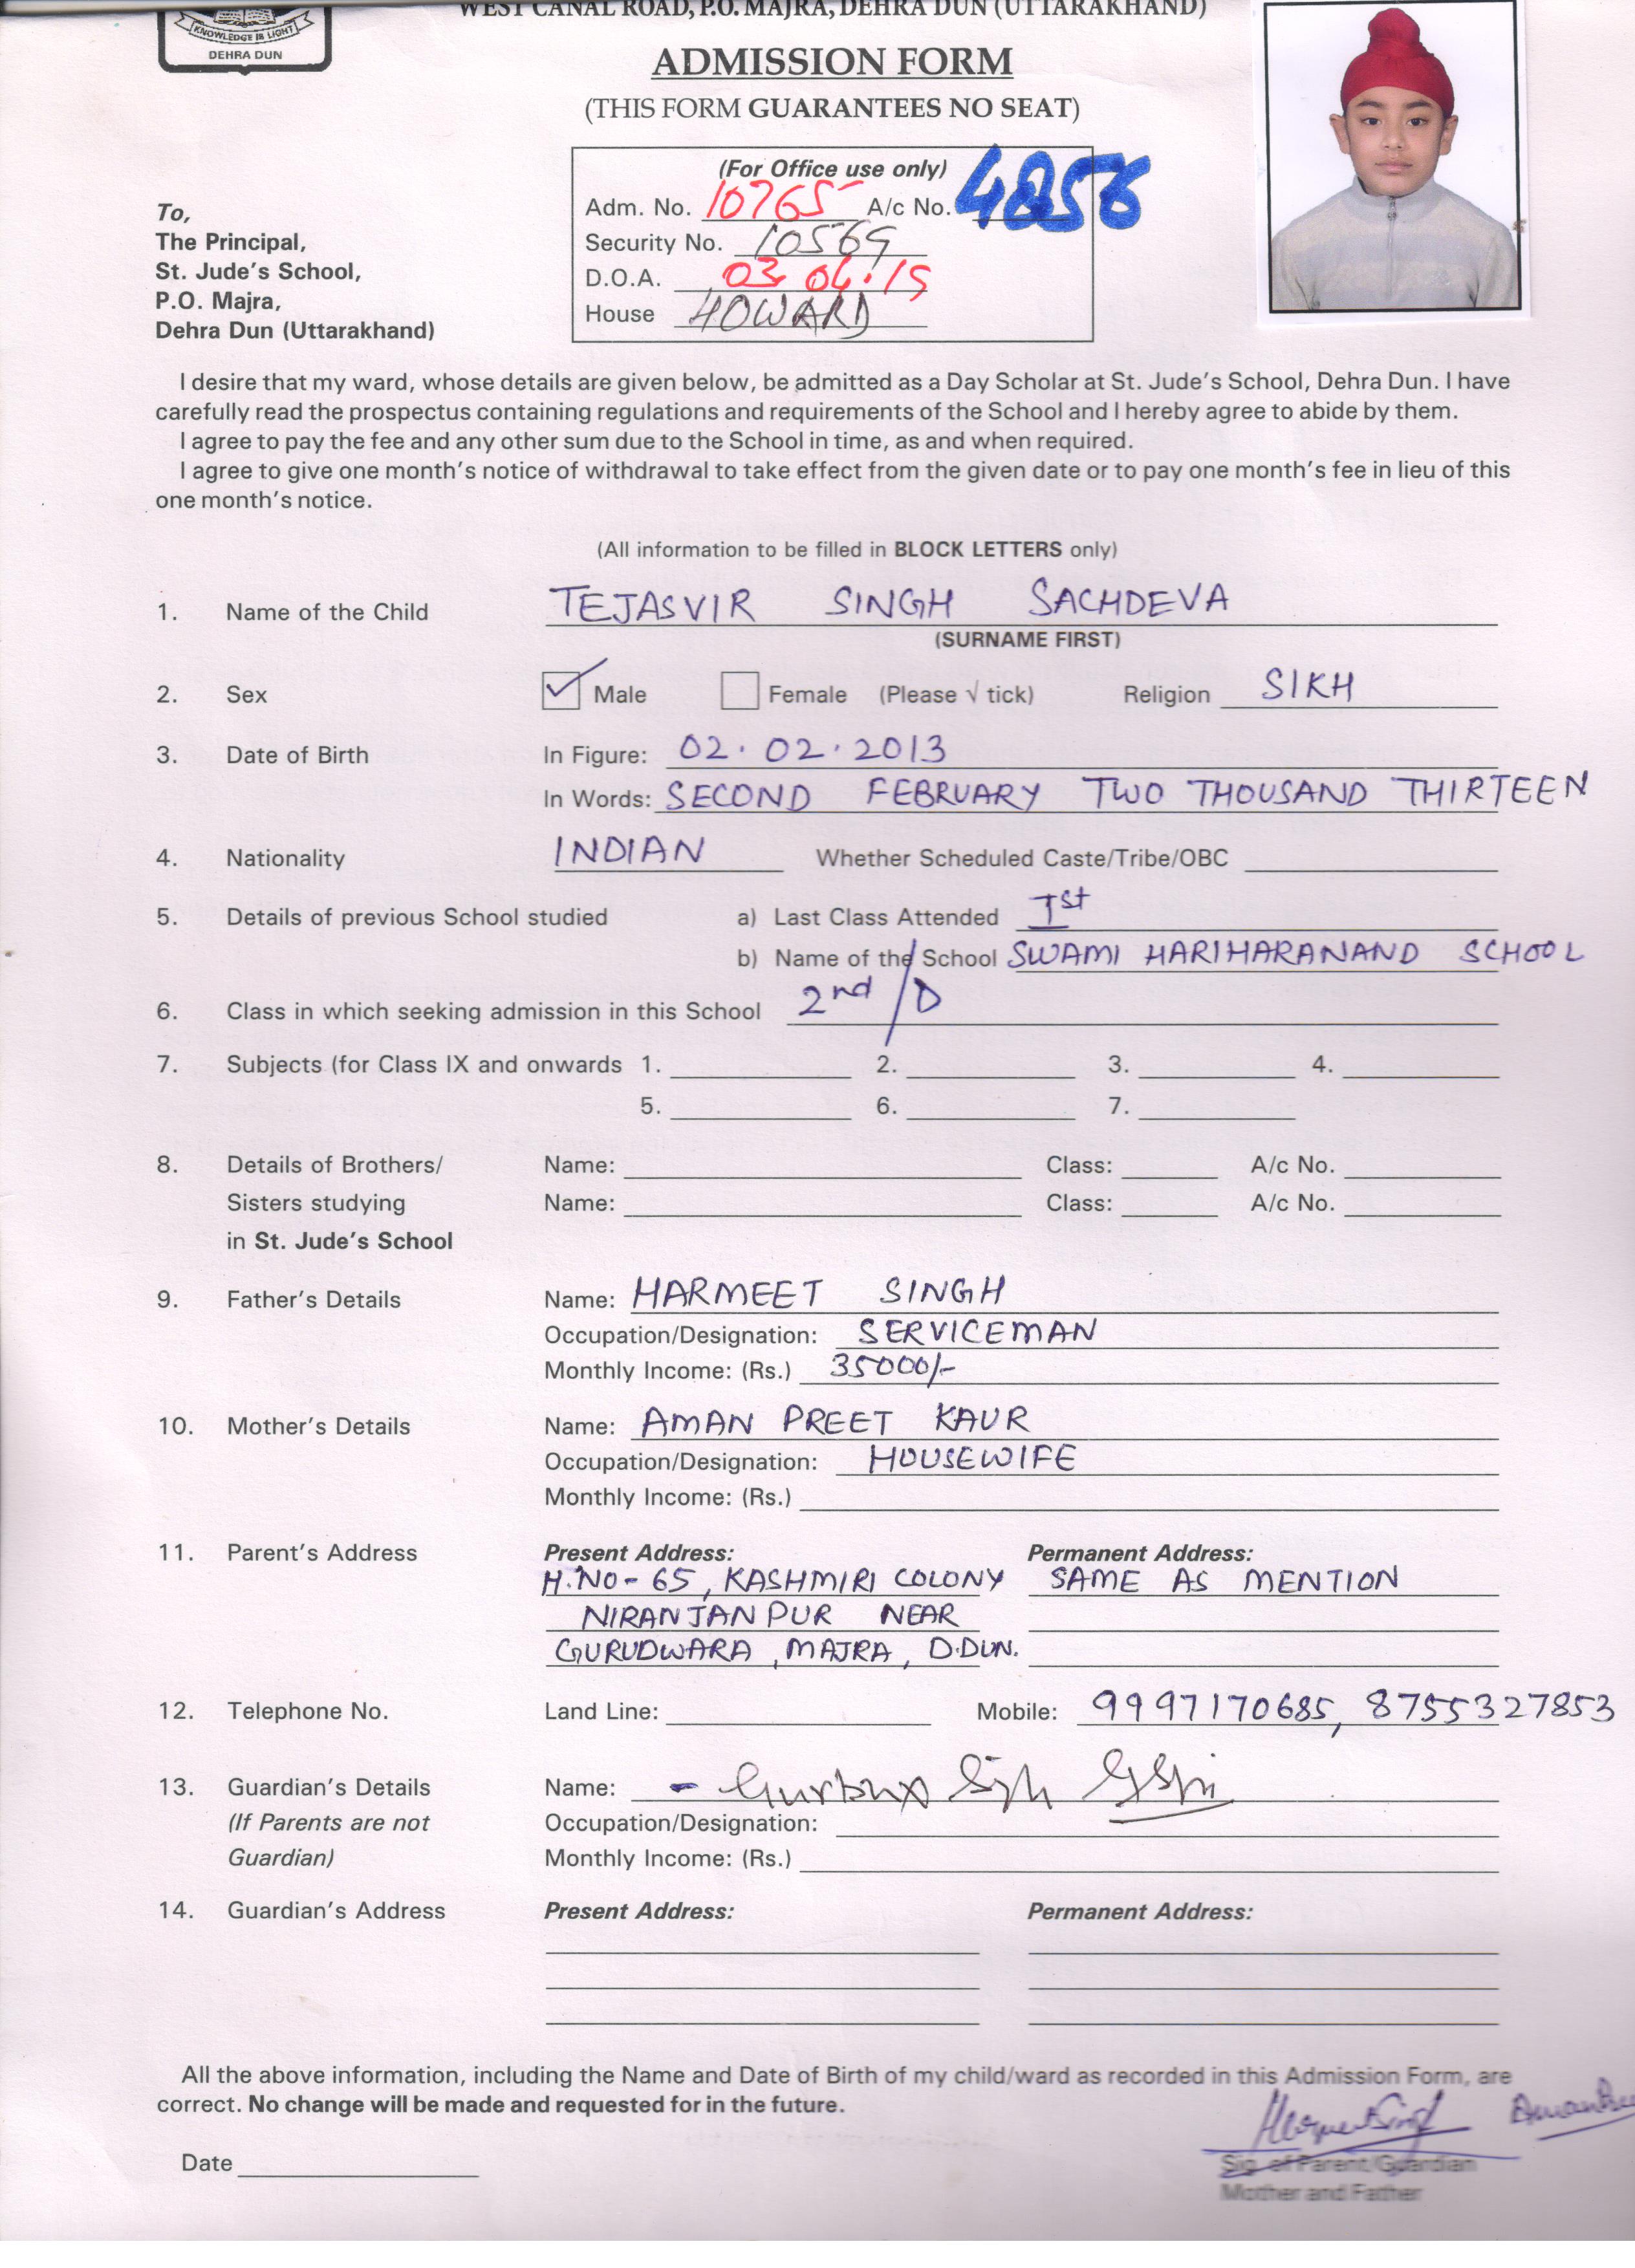 WEST CANAL ROAD, P.O. MAJRA, DEHRA DUN (UTTARAKHAND)
KNOWLEDGE IS LIGHT
DEHRA DUN
ADMISSION FORM
(THIS FORM GUARANTEES NO SEAT)
(For Office use only)
Adm. No. 10765 A/c No. 4856
Security No. 10569
D.O.A. 03.04.19
House HOWARD
To,
The Principal,
St. Jude's School,
P.O. Majra,
Dehra Dun (Uttarakhand)
I desire that my ward, whose details are given below, be admitted as a Day Scholar at St. Jude's School, Dehra Dun. I have
carefully read the prospectus containing regulations and requirements of the School and I hereby agree to abide by them.
I agree to pay the fee and any other sum due to the School in time, as and when required.
I agree to give one month's notice of withdrawal to take effect from the given date or to pay one month's fee in lieu of this
one month's notice.
(All information to be filled in BLOCK LETTERS only)
1. Name of the Child TEJASVIR SINGH SACHDEVA
(SURNAME FIRST)
2. Sex Male Female (Please √ tick) Religion SIKH
3. Date of Birth In Figure: 02.02.2013
In Words: SECOND FEBRUARY TWO THOUSAND THIRTEEN
4. Nationality INDIAN Whether Scheduled Caste/Tribe/OBC
5. Details of previous School studied a) Last Class Attended Ist
b) Name of the School SWAMI HARIHARANAND SCHOOL
6. Class in which seeking admission in this School 2nd/D
7. Subjects (for Class IX and onwards 1. 2. 3. 4.
5. 6. 7.
8. Details of Brothers/ Name: Class: A/c No.
Sisters studying Name: Class: A/c No.
in St. Jude's School
9. Father's Details Name: HARMEET SINGH
Occupation/Designation: SERVICEMAN
Monthly Income: (Rs.) 35000/-
10. Mother's Details Name: AMAN PREET KAUR
Occupation/Designation: HOUSEWIFE
Monthly Income: (Rs.)
11. Parent's Address Present Address: Permanent Address:
H.NO-65, KASHMIRI COLONY SAME AS MENTION
NIRANJANPUR NEAR
GURUDWARA, MAJRA, D.DUN.
12. Telephone No. Land Line: Mobile: 9997170685, 8755327853
13. Guardian's Details Name: -
(If Parents are not Occupation/Designation:
Guardian) Monthly Income: (Rs.)
14. Guardian's Address Present Address: Permanent Address:
All the above information, including the Name and Date of Birth of my child/ward as recorded in this Admission Form, are
correct. No change will be made and requested for in the future.
Date
Sig. of Parent/Guardian
Mother and Father